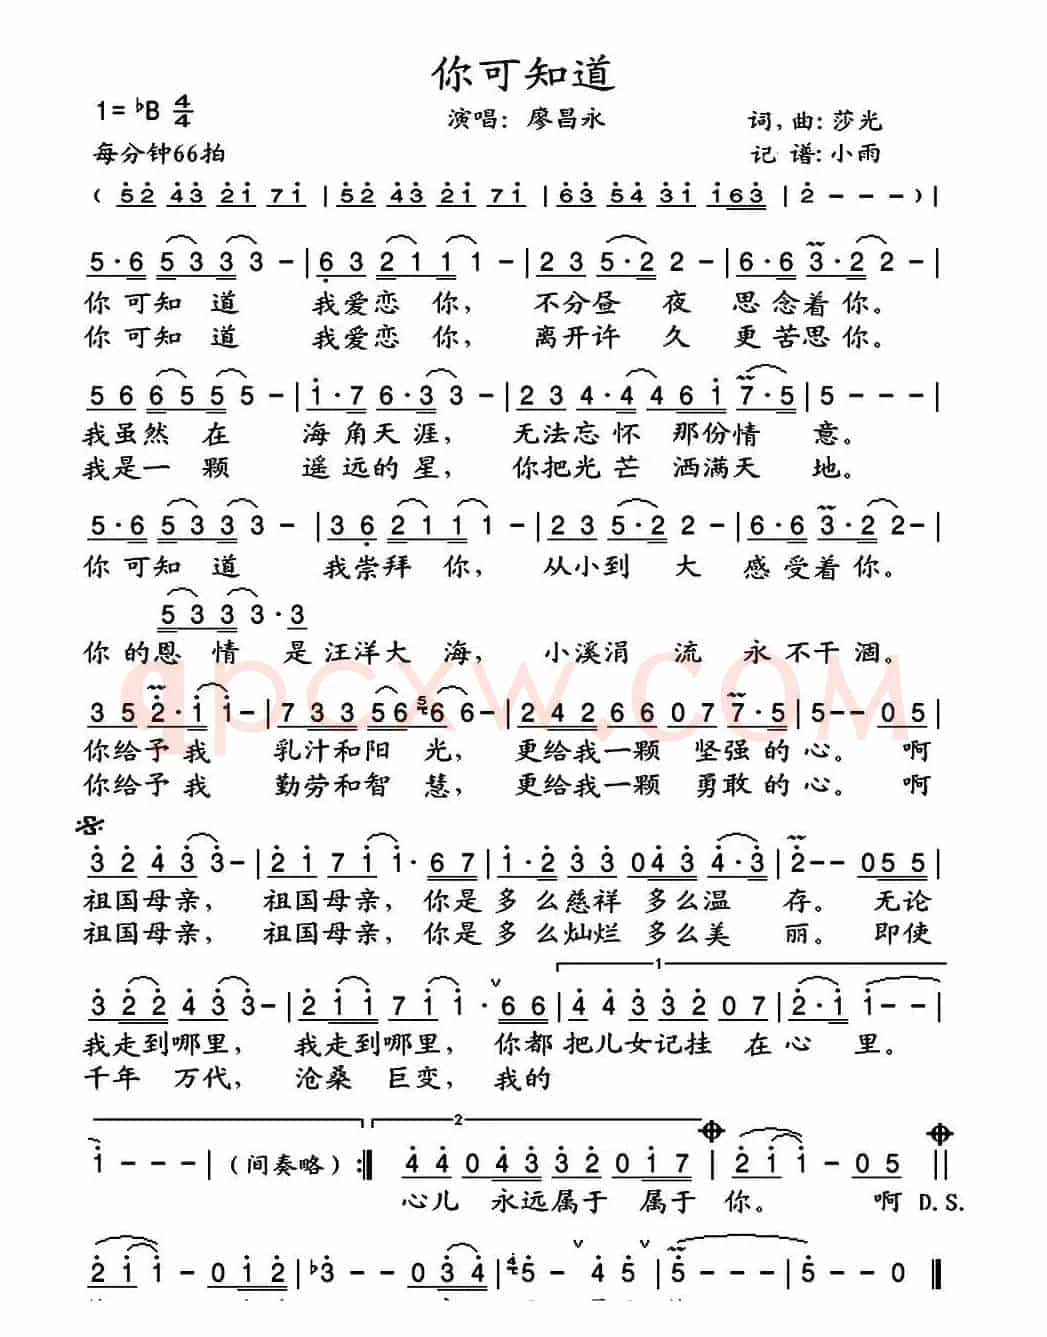 你可知道
1=♭B 4/4
演唱：廖昌永
词,曲:莎光
每分钟66拍
记 谱:小雨
( 52 43 21 71 | 52 43 21 71 | 63 54 31 163 | 2 - - - ) |
5·6 533 3 - | 6 3 211 1 - | 2 3 5·2 2 - | 6·6 3·2 2 - |
你 可知 道 我爱恋 你， 不分昼 夜 思 念着 你。
你 可知 道 我爱恋 你， 离开许 久 更 苦思 你。
5 6 6 5 5 5 - | 1·7 6·3 3 - | 2 3 4·4 4 6 1 7·5 | 5 - - - |
我虽然 在 海 角天 涯， 无法忘 怀 那份情 意。
我是一 颗 遥 远的 星， 你把光 芒 洒满天 地。
5·6 5 3 3 3 - | 3 6 2 1 1 1 - | 2 3 5·2 2 - | 6·6 3·2 2 - |
你 可知 道 我崇拜 你， 从小到 大 感 受着 你。
5 3 3 3·3
你 的恩 情 是 汪洋大 海， 小溪涓 流 永 不干 涸。
qpcxw.com
3 5 2·1 1 - | 7 3 3 5 6 5 6 6 - | 2 4 2 6 6 0 7 7·5 | 5 - - 0 5 |
你给予 我 乳汁和阳 光， 更给我一颗 坚强 的 心。 啊
你给予 我 勤劳和智 慧， 更给我一颗 勇敢 的 心。 啊
3 2 4 3 3 - | 2 1 7 1 1·6 7 | 1·2 3 3 0 4 3 4·3 | 2 - - 0 5 5 |
祖国母亲， 祖国母亲， 你是 多 么慈祥 多么温 存。 无论
祖国母亲， 祖国母亲， 你是 多 么灿烂 多么美 丽。 即使
3 2 2 4 3 3 - | 2 1 1 7 1 1 · ∨ 6 6 | 1 4 4 3 3 2 0 7 | 2·1 1 - - |
我走到哪里， 我走到哪里， 你都 把儿女记挂 在 心 里。
千年 万代， 沧桑 巨变， 我的
1 - - - | (间奏略) :‖ 2 4 4 0 4 3 3 2 0 1 7 | 2 1 1 - 0 5 ‖
心儿 永远属于 属于 你。 啊 D.S.
2 1 1 - 0 1 2 | ♭3 - - 0 3 4 | 4 5 - ∨ 4 5 ∨ | 5 - - - | 5 - - 0 ‖